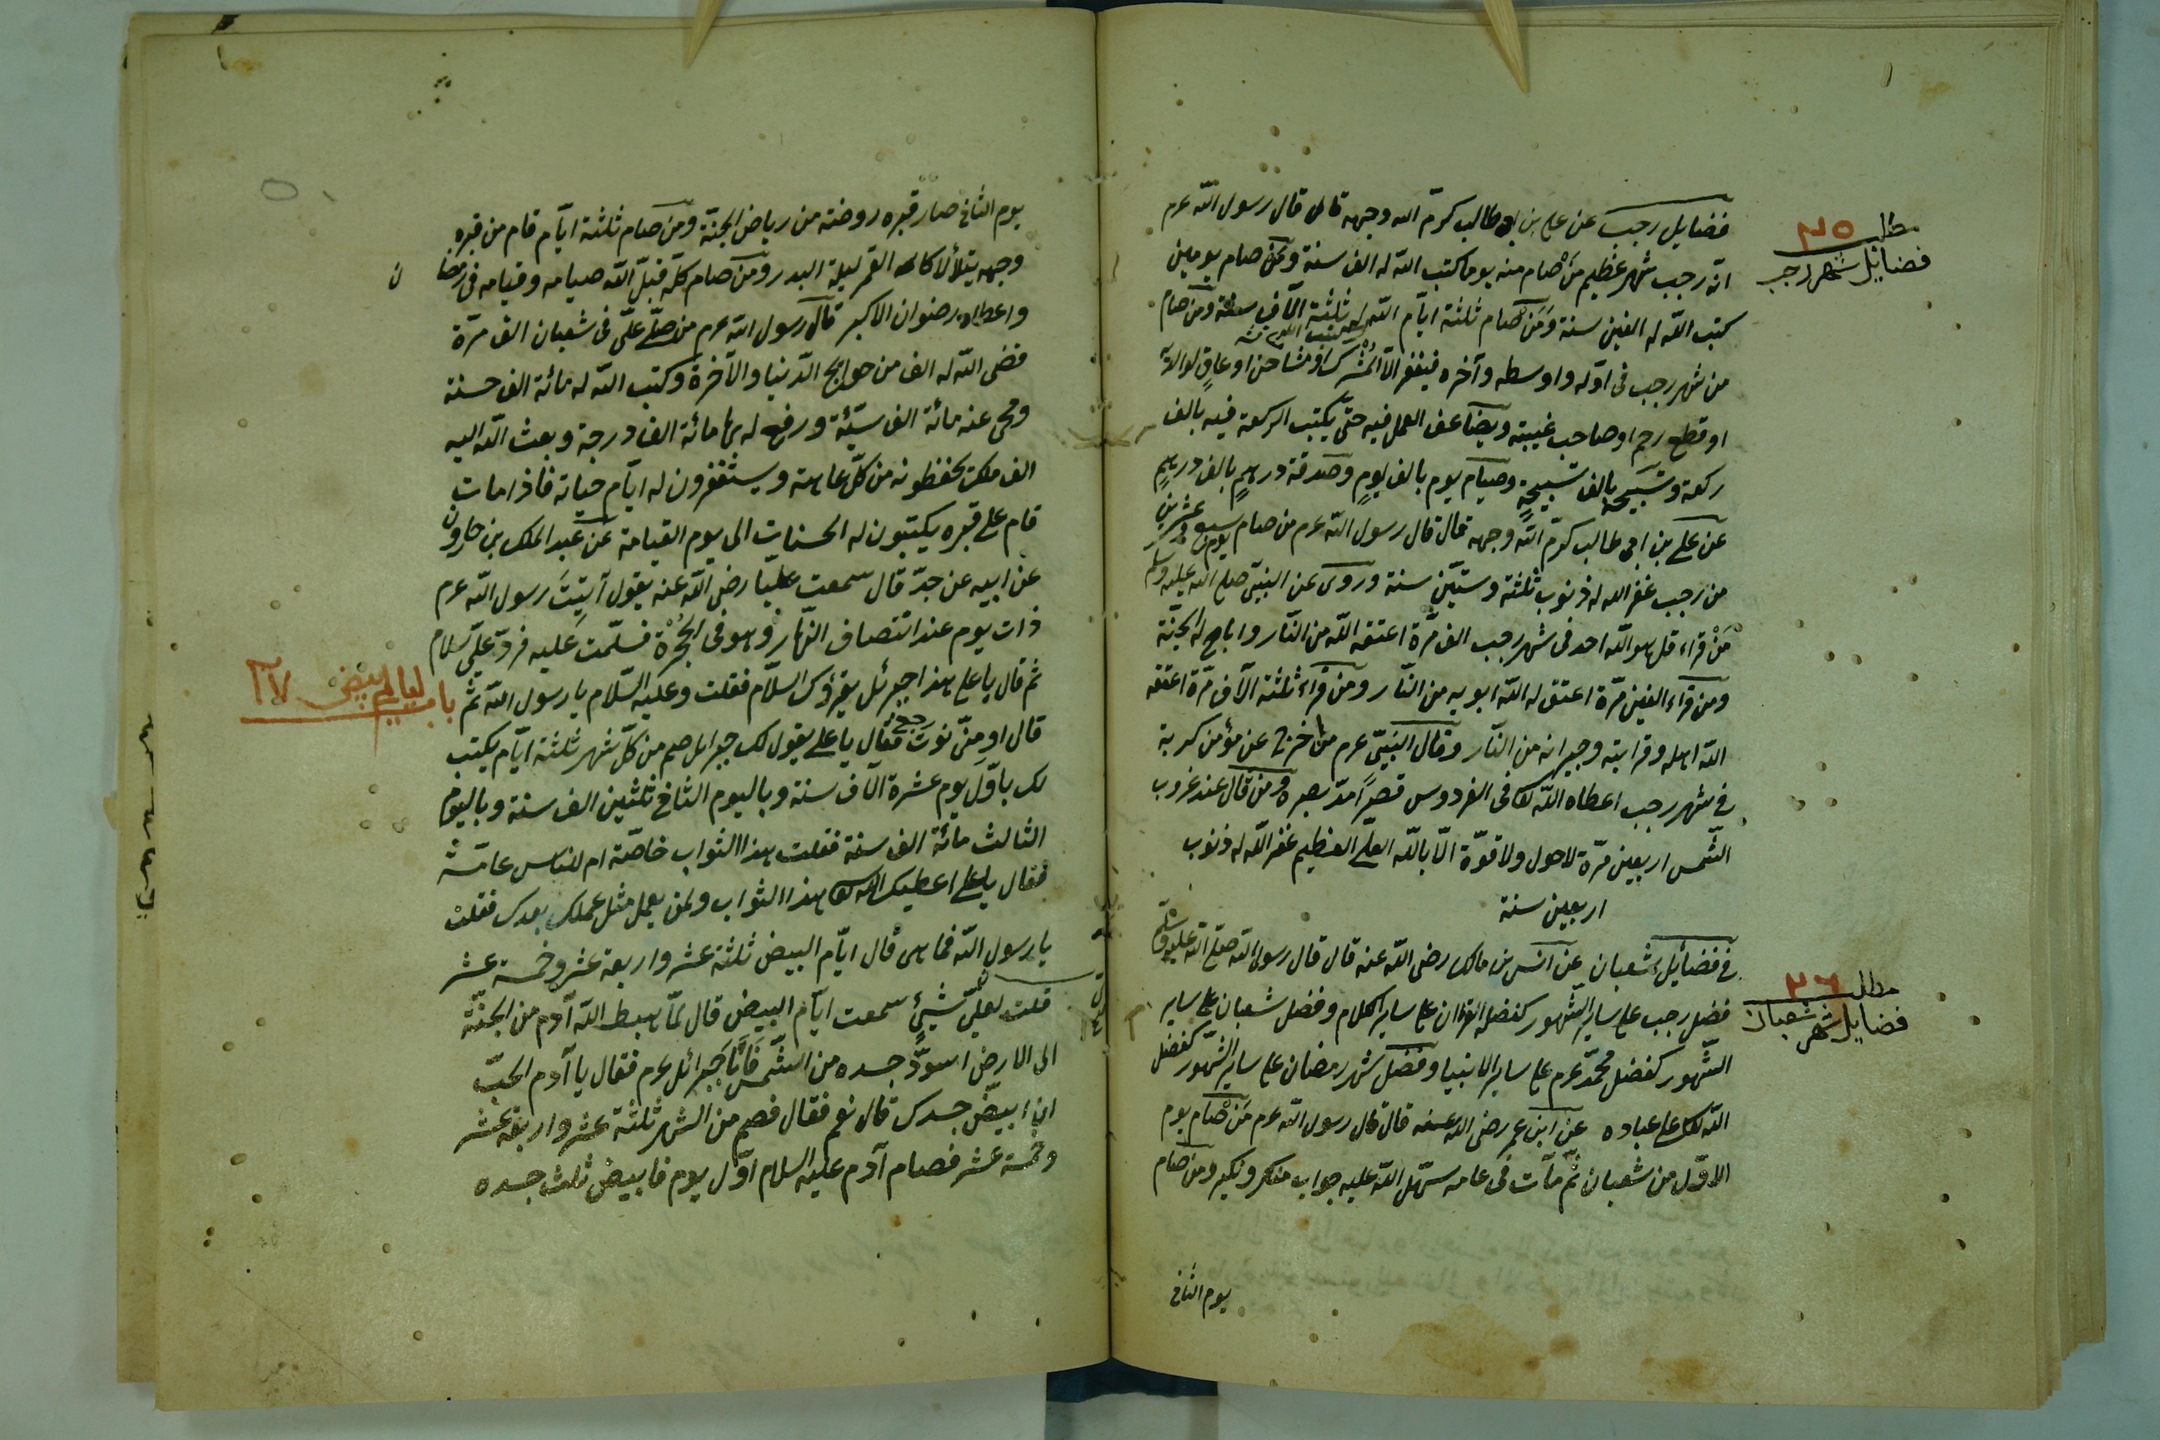 مطلب ٣٥
فضايل شهر رجب
فضايل رجب عن علي بن ابى طالب كرّم الله وجهه قال قال رسول الله عم
انّ رجب شهر عظيم مَنْ صام منه يوما كتب الله له الف سنة ومَنْ صام يومين
كتب الله له الفين سنة وَمَنْ صام ثلثة ايّام الله له ثلثة آلاف سنة ومن صام
من شهر رجب فى اوّله واوسطه وآخره فيغفر الّا المُشْرك او مشاحن او عاقٍ لوالديه
او قطع رحم او صاحب غيبته ويضاعف العمل فيه حتّى يكتب الركعة فيه بالف
ركعة وتسبيحة بالف تسبيحةٍ وصيام يوم بالف يومٍ وصدقة درهمٍ بالف درهمٍ
عن على بن ابى طالب كرّم الله وجهه قال قال رسول الله عم من صام يوم سبع وعشرين
من رجب غفر الله له ذنوب ثلثة وستّين سنة وروى عن النبىّ صلى الله عليه وسلم
مَنْ قراء قل هو الله احد فى شهر رجب الف مرّة اعتقه الله من النّار واباح له الجنّة
ومن قراء الفين مرّة اعتق له الله ابويه من النّار ومن قراء ثلثة آلاف مرّة اعتقه
الله اهله وقرابته وجيرانه من النّار وقال النبىّ عم من اخرج عن مؤمن كربة
فى شهر رجب اعطاه الله تعالى فى الفردوس قصرًا مدّ بصره ومن قال عند غروب
الشّمس اربعين مرّة لا حول ولا قوّة الّا بالله العلى العظيم غفر الله له ذنوب
اربعين سنة
مطلب ٣٦
فضايل شهر شعبان
فى فضائل شعبان عن انس بن مالك رضى الله عنه قال قال رسول الله صلى الله عليه وسلّم
فضل رجب على ساير الشّهور كفضل القران على ساير الكلام وفضل شعبان على ساير
الشّهور كفضل محمّد عم على ساير الانبيا وفضل شهر رمضان على ساير الشّهور كفضل
الله على عباده عن ابن عمر رضى الله عنه قال قال رسول الله عم مَنْ صام يوم
الاوّل من شعبان ثمّ مات فى عامه سهّل الله عليه جواب منكر ونكير ومن صام
يوم الثانى
يوم الثانى صار قبره روضة من رياض الجنّة ومن صام ثلثة ايّام قام من قبره
وجهه يتلألأ كالقمر ليلة البدر ومن صام كلّه قبل الله صيامه وقيامه فى رمضان
واعطاه رضوان الاكبر قال رسول الله عم من صلّى علىّ فى شعبان الف مرّة
قضى الله له الف من حوايج الدّنيا والآخرة وكتب الله له مائة الف حسنة
ومحى عنه مائة الف سيّئة ورفع له بها مائة الف درجة وبعث الله اليه
الف ملك يحفظونه من كلّ عاهة ويستغفرون له ايّام حياته فاذا مات
قام على قبره يكتبون له الحسنات الى يوم القيامة عن عبد الملك بن هارون
عن ابيه عن جدّ قال سمعت عليّا رضى الله عنه يقول آتيت رسول الله عم
ذات يوم عند انتصاف النّهار وهو فى الحُجْرة فسلّمت عليه فردّ علىّ السلام
ثم قال يا على هذا جبرئيل يقرؤك السلام فقلت وعليه السّلام يا رسول الله ثمّ
باب ليالى بيض ٣٧
قال ادن منّى فدنوت فقال يا على يقول لك جبرائل صم من كلّ شهر ثلثة ايّام يكتب
لك باوّل يوم عشرة آلاف سنة وباليوم الثانى ثلثين الف سنة وباليوم
الثالث مائة الف سنة فقلت هذا الثواب خاصّة ام للناس عامّة
فقال يا على اعطيك الله تعالى هذا الثواب ولمن يعمل مثل عملك بعدك فقلت
يا رسول الله فما هى قال ايّام البيض ثلثة عشر واربعة عشر وخمسة عشر
قلت لعلىّ لاىّ شيئ سمعت ايّام البيض قال لمّا هبط الله آدم من الجنّة
الى الارض اسودّ جسده من الشّمس فأتا جبرائل عم فقال يا آدم اتحبّ
ان ابيضّ جسدك قال نعم فقال فصم من الشهر ثلثة عشر واربعة عشر
وخمسة عشر فصام آدم عليه السلام اوّل يوم فابيض ثلث جسده